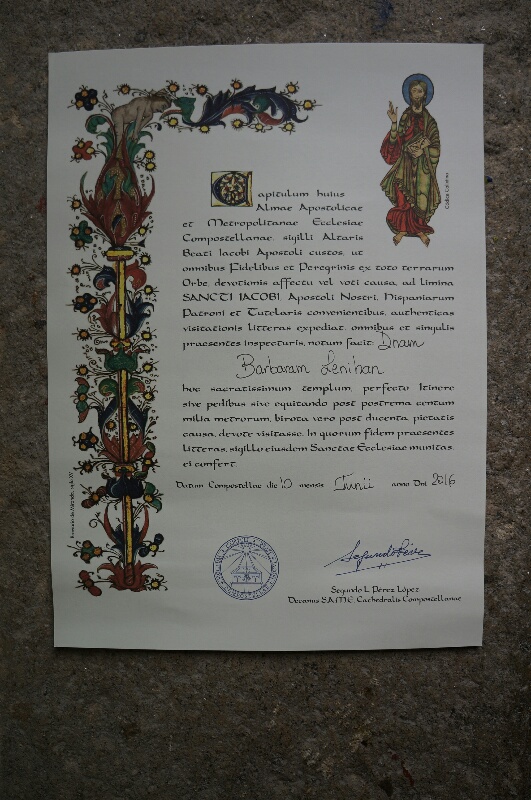 Capitulum huius
Almae Apostolicae
et Metropolitanae Ecclesiae
Compostellanae, sigilli Altaris
Beati Iacobi Apostoli custos, ut
omnibus Fidelibus et Peregrinis ex toto terrarum
Orbe, devotionis affectu vel voti causa, ad limina
SANCTI IACOBI, Apostoli Nostri, Hispaniarum
Patroni et Tutelaris convenientibus, authenticas
visitationis litteras expediat, omnibus et singulis
praesentes inspecturis, notum facit: Dnam
Barbaram Lenihan
hoc sacratissimum templum, perfecto Itinere
sive pedibus sive equitando post postrema centum
milia metrorum, birota vero post ducenta, pietatis
causa, devote visitasse. In quorum fidem praesentes
litteras, sigillo eiusdem Sanctae Ecclesiae munitas,
ei confert.
Datum Compostellae die 10 mensis Iunii anno Dni 2016
Segundo L. Pérez López
Decanus S.A.M.E. Cathedralis Compostellanae
Codex Calixtino